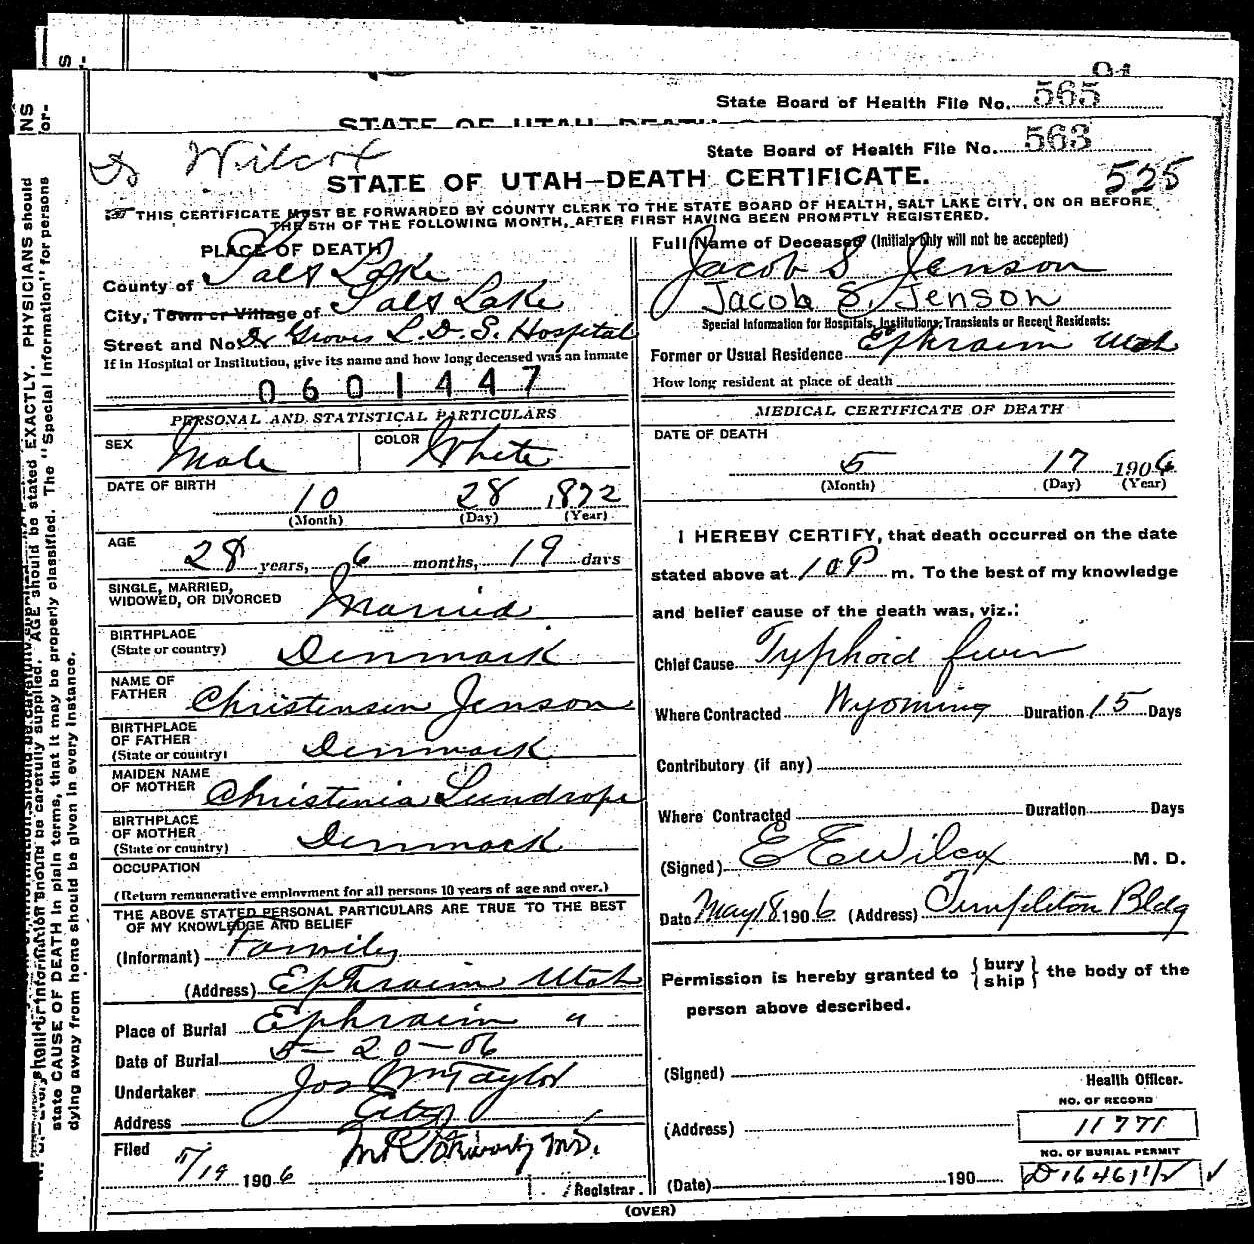 State Board of Health File No. 565
STATE OF UTAH—DEATH
Dr Wilcox
State Board of Health File No. 563
525
STATE OF UTAH—DEATH CERTIFICATE.
THIS CERTIFICATE MUST BE FORWARDED BY COUNTY CLERK TO THE STATE BOARD OF HEALTH, SALT LAKE CITY, ON OR BEFORE
THE 5TH OF THE FOLLOWING MONTH, AFTER FIRST HAVING BEEN PROMPTLY REGISTERED.
PLACE OF DEATH
County of Salt Lake
City, Town or Village of Salt Lake
Street and No. Dr Groves L.D.S. Hospital
If in Hospital or Institution, give its name and how long deceased was an inmate
0601447
PERSONAL AND STATISTICAL PARTICULARS
SEX Male COLOR White
DATE OF BIRTH 10 28 1872
(Month) (Day) (Year)
AGE 28 years, 6 months, 19 days
SINGLE, MARRIED,
WIDOWED, OR DIVORCED Married
BIRTHPLACE
(State or country) Denmark
NAME OF
FATHER Christensen Jenson
BIRTHPLACE
OF FATHER
(State or country) Denmark
MAIDEN NAME
OF MOTHER Christenia Lundrope
BIRTHPLACE
OF MOTHER
(State or country) Denmark
OCCUPATION
(Return remunerative employment for all persons 10 years of age and over.)
THE ABOVE STATED PERSONAL PARTICULARS ARE TRUE TO THE BEST
OF MY KNOWLEDGE AND BELIEF
(Informant) Family
(Address) Ephraim Utah
Place of Burial Ephraim "
Date of Burial 5-20-06
Undertaker Jos Wm Taylor
Address City
Filed 5/19 1906 M.D.
Registrar.
Full Name of Deceased (Initials only will not be accepted)
Jacob S Jenson
Jacob S. Jenson
Special Information for Hospitals, Institutions, Transients or Recent Residents:
Former or Usual Residence Ephraim Utah
How long resident at place of death
MEDICAL CERTIFICATE OF DEATH
DATE OF DEATH
5 17 1906
(Month) (Day) (Year)
I HEREBY CERTIFY, that death occurred on the date
stated above at 10 P m. To the best of my knowledge
and belief cause of the death was, viz.:
Chief Cause Typhoid fever
Where Contracted Wyoming Duration 15 Days
Contributory (if any)
Where Contracted Duration Days
(Signed) E E Wilcox M. D.
Date May 18 1906 (Address) Templeton Bldg
Permission is hereby granted to { bury ship } the body of the
person above described.
(Signed)
Health Officer.
NO. OF RECORD
(Address) 11771
NO. OF BURIAL PERMIT
(Date) 190 D 16461 1/2
(OVER)
state CAUSE OF DEATH in plain terms, that it may be properly classified. The "Special Information" for persons
dying away from home should be given in every instance.
should be carefully supplied. AGE should be stated EXACTLY. PHYSICIANS should